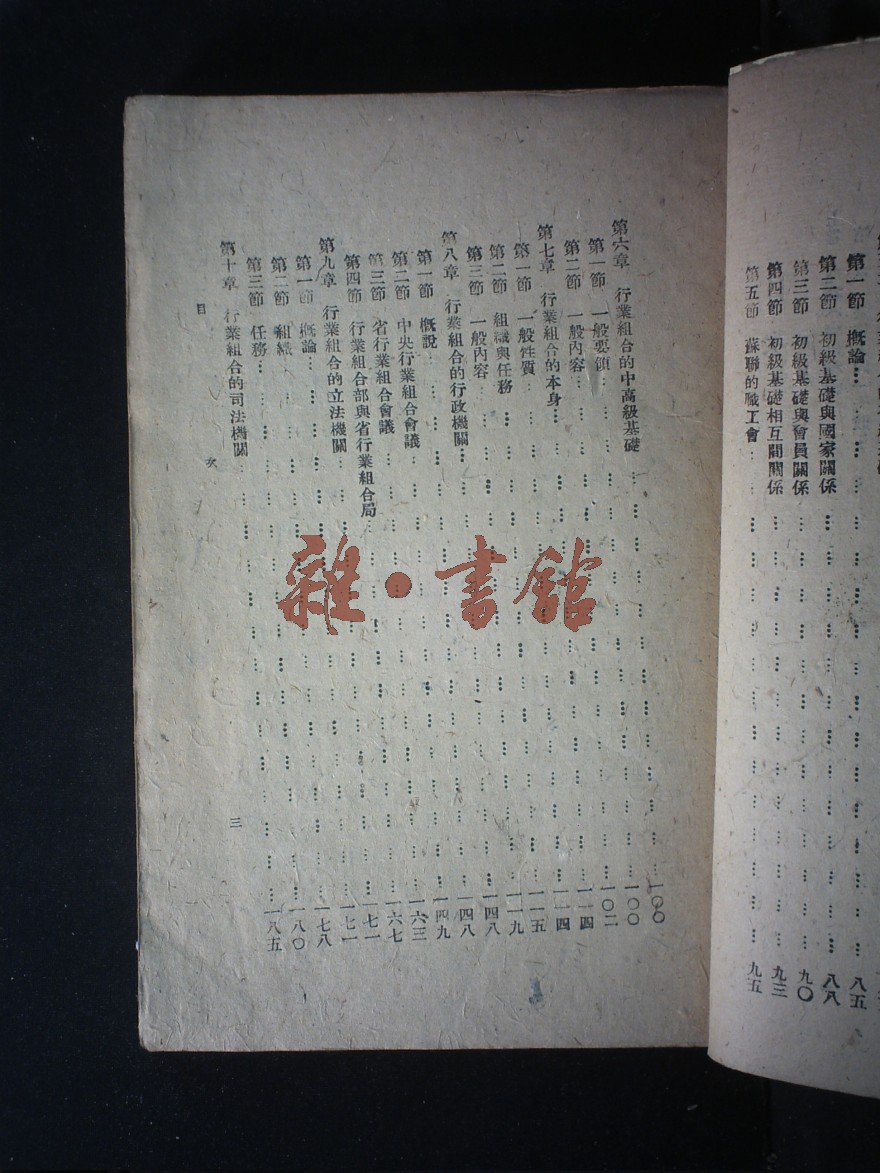 第一節 概論……八五
第二節 初級基礎與國家關係……八八
第三節 初級基礎與會員關係……九〇
第四節 初級基礎相互間關係……九三
第五節 蘇聯的職工會……九五
第六章 行業組合的中高級基礎……一〇〇
第一節 一般要領……一〇〇
第二節 一般內容……一〇二
第七章 行業組合的本身……一一四
第一節 一般性質……一一四
第二節 組織與任務……一一五
第三節 一般內容……一一九
第八章 行業組合的行政機關……一四八
第一節 概說……一四八
第二節 中央行業組合會議……一四九
第三節 省行業組合會議……一六三
第四節 行業組合部與省行業組合局……一六七
第九章 行業組合的立法機關……一七一
第一節 概論……一七一
第二節 組織……一七八
第三節 任務……一八〇
第十章 行業組合的司法機關……一八五
目 次 三
雜·書館